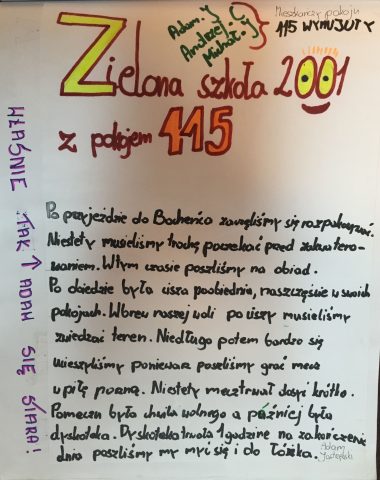 Adam. Y
Andrzej
Michał. J
Mieszkańcy pokoju
115 WYMUJUTY
Zielona szkoła 2001
z pokojem 115
WŁAŚNIE TAK ↑ ADAM SIĘ STARA!
Po przyjeździe do Bocheńca zaczęliśmy się rozpakowywać.
Niestety musieliśmy trochę poczekać przed zakwatero-
waniem. W tym czasie poszliśmy na obiad.
Po obiedzie była cisza poobiednia, naszczęście w swoich
pokojach. Wbrew naszej woli po ciszy musieliśmy
zwiedzać teren. Niedługo potem bardzo się
ucieszyliśmy ponieważ poszliśmy grać mecz
w piłę nożną. Niestety mecz trwał dosyć krótko.
Po meczu była chwila wolnego a później była
dyskoteka. Dyskoteka trwała 1 godzinę na zakończenie
dnia poszliśmy my myć się i do łóżka.
Adam